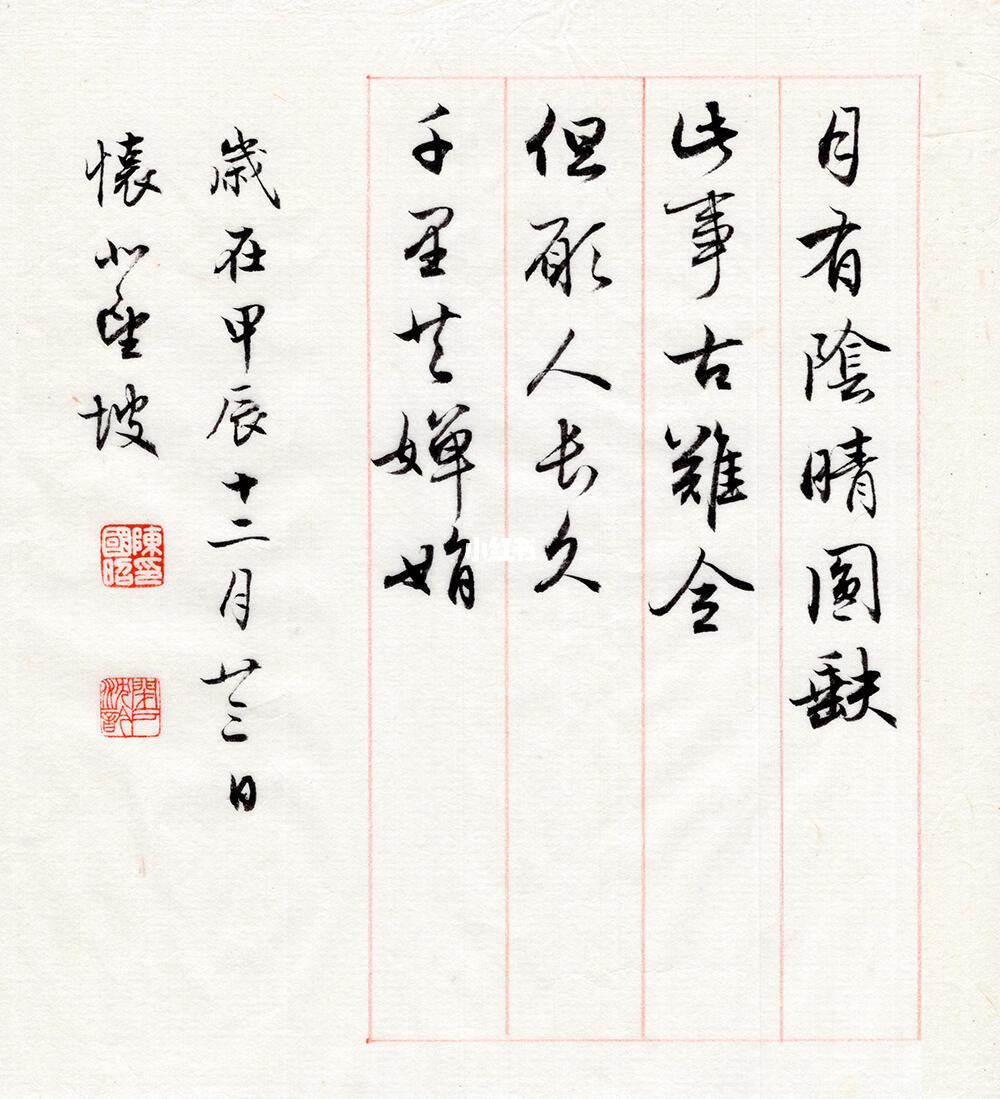 月有陰晴圓缺
此事古難全
但願人長久
千里共嬋娟
歲在甲辰十二月廿三日
懷 坡
陳印國昭
小红书